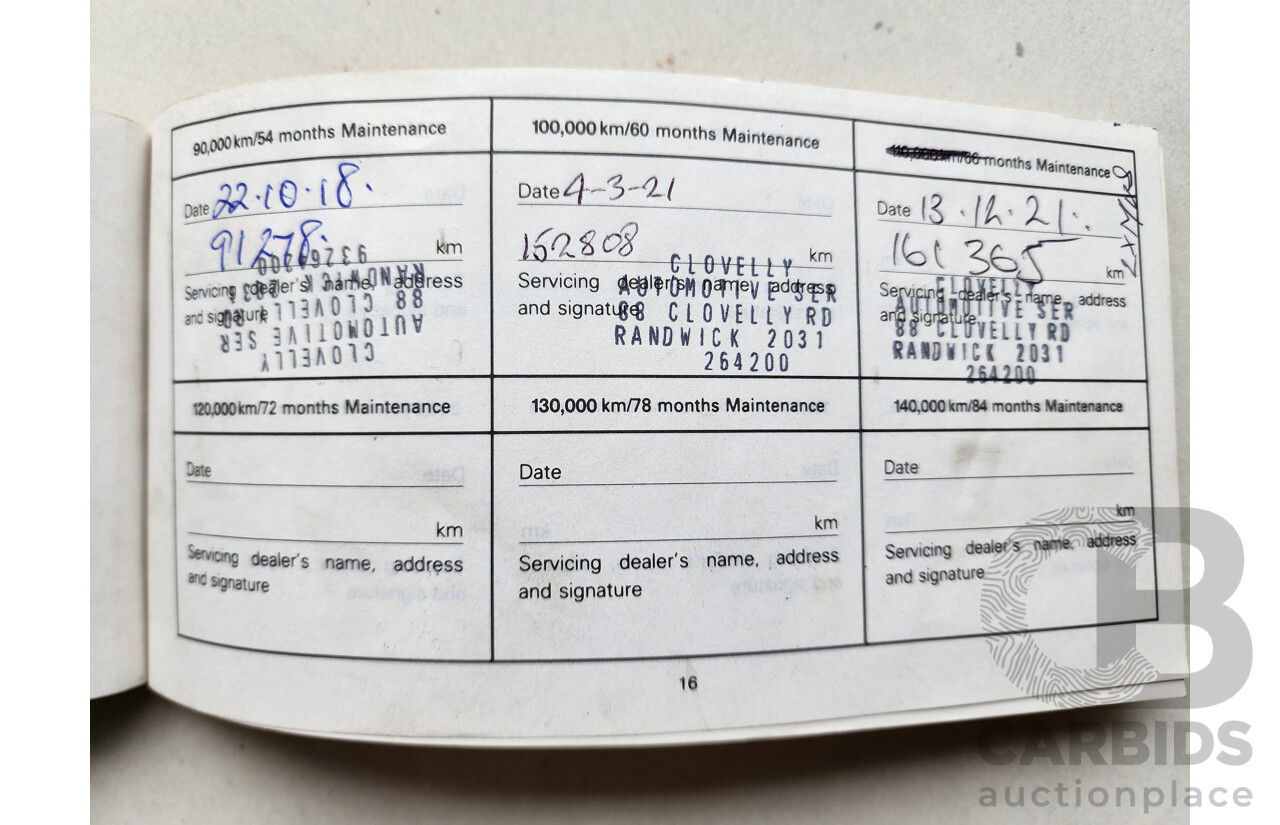 90,000 km/54 months Maintenance
Date 22.10.18.
91278. km
Servicing dealer's name, address
and signature
CLOVELLY
AUTOMOTIVE SER
88 CLOVELLY RD
RANDWICK 2031
93264200
100,000 km/60 months Maintenance
Date 4-3-21
152808 km
Servicing dealer's name, address
and signature
CLOVELLY
AUTOMOTIVE SER
88 CLOVELLY RD
RANDWICK 2031
264200
months Maintenance
Date 13.12.21.
161 365 km
Servicing dealer's name, address
and signature
CLOVELLY
AUTOMOTIVE SER
88 CLOVELLY RD
RANDWICK 2031
264200
120,000 km/72 months Maintenance
Date
km
Servicing dealer's name, address
and signature
130,000 km/78 months Maintenance
Date
km
Servicing dealer's name, address
and signature
140,000 km/84 months Maintenance
Date
km
Servicing dealer's name, address
and signature
16
CARBIDS
auctionplace